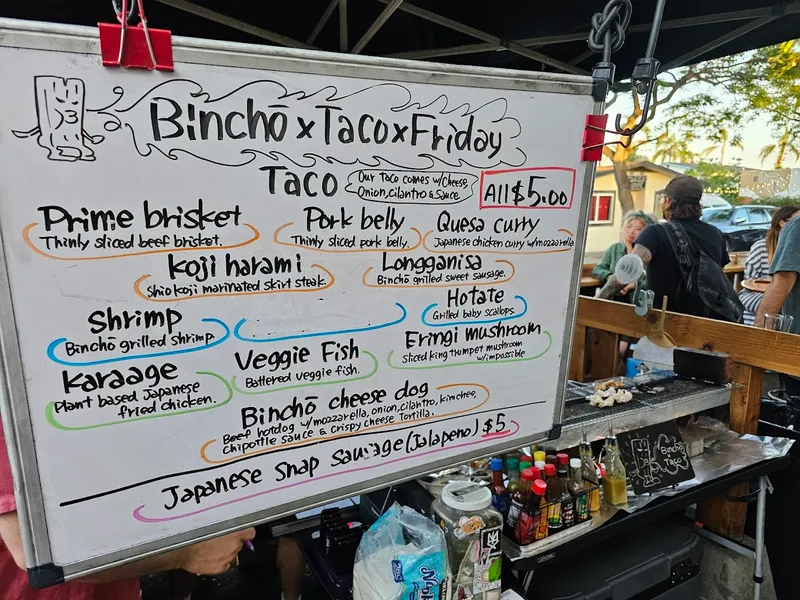 Binchō x Taco x Friday
Taco
Our taco comes w/Cheese,
Onion, cilantro & Sauce
All $5.00
Prime brisket
Thinly sliced beef brisket.
Pork belly
Thinly sliced pork belly.
Quesa curry
Japanese chicken curry w/mozzarella
Koji harami
Shio koji marinated skirt steak
Longganisa
Binchō grilled sweet sausage.
Shrimp
Binchō grilled shrimp
Hotate
Grilled baby scallops.
Karaage
Plant based Japanese
fried chicken.
Veggie Fish
Battered veggie fish.
Eringi mushroom
sliced king trumpet mushroom
w/impossible
Binchō cheese dog
Beef hotdog w/mozzarella, onion, cilantro, kimchee,
chipotle sauce & crispy cheese Tortilla.
Japanese Snap Sausage (Jalapeno) $5
Binchō
Taco